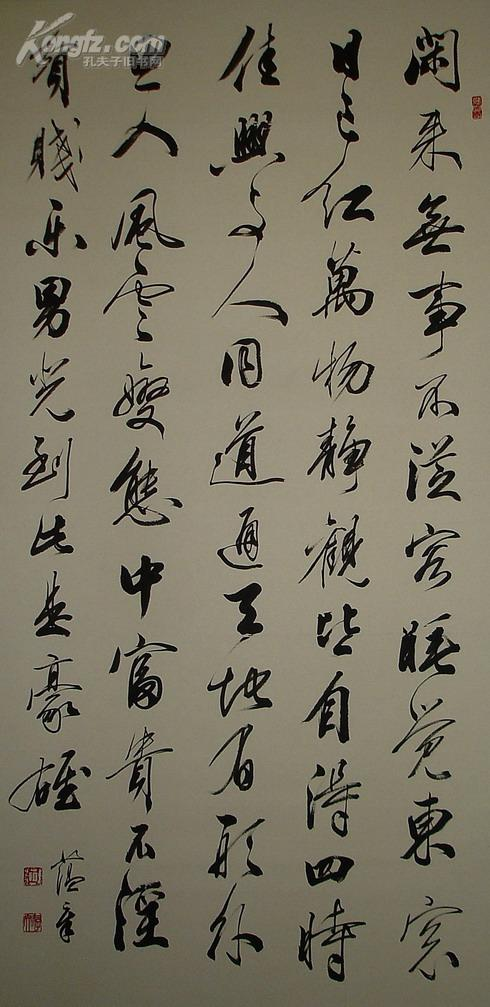 Kongfz.com
孔夫子旧书网
閑来無事不從容睡覺東窗
日已红萬物靜觀皆自得四時
佳興与人同道通天地有形外
思入風雲變態中富貴不淫
貧賤乐男兒到此是豪雄